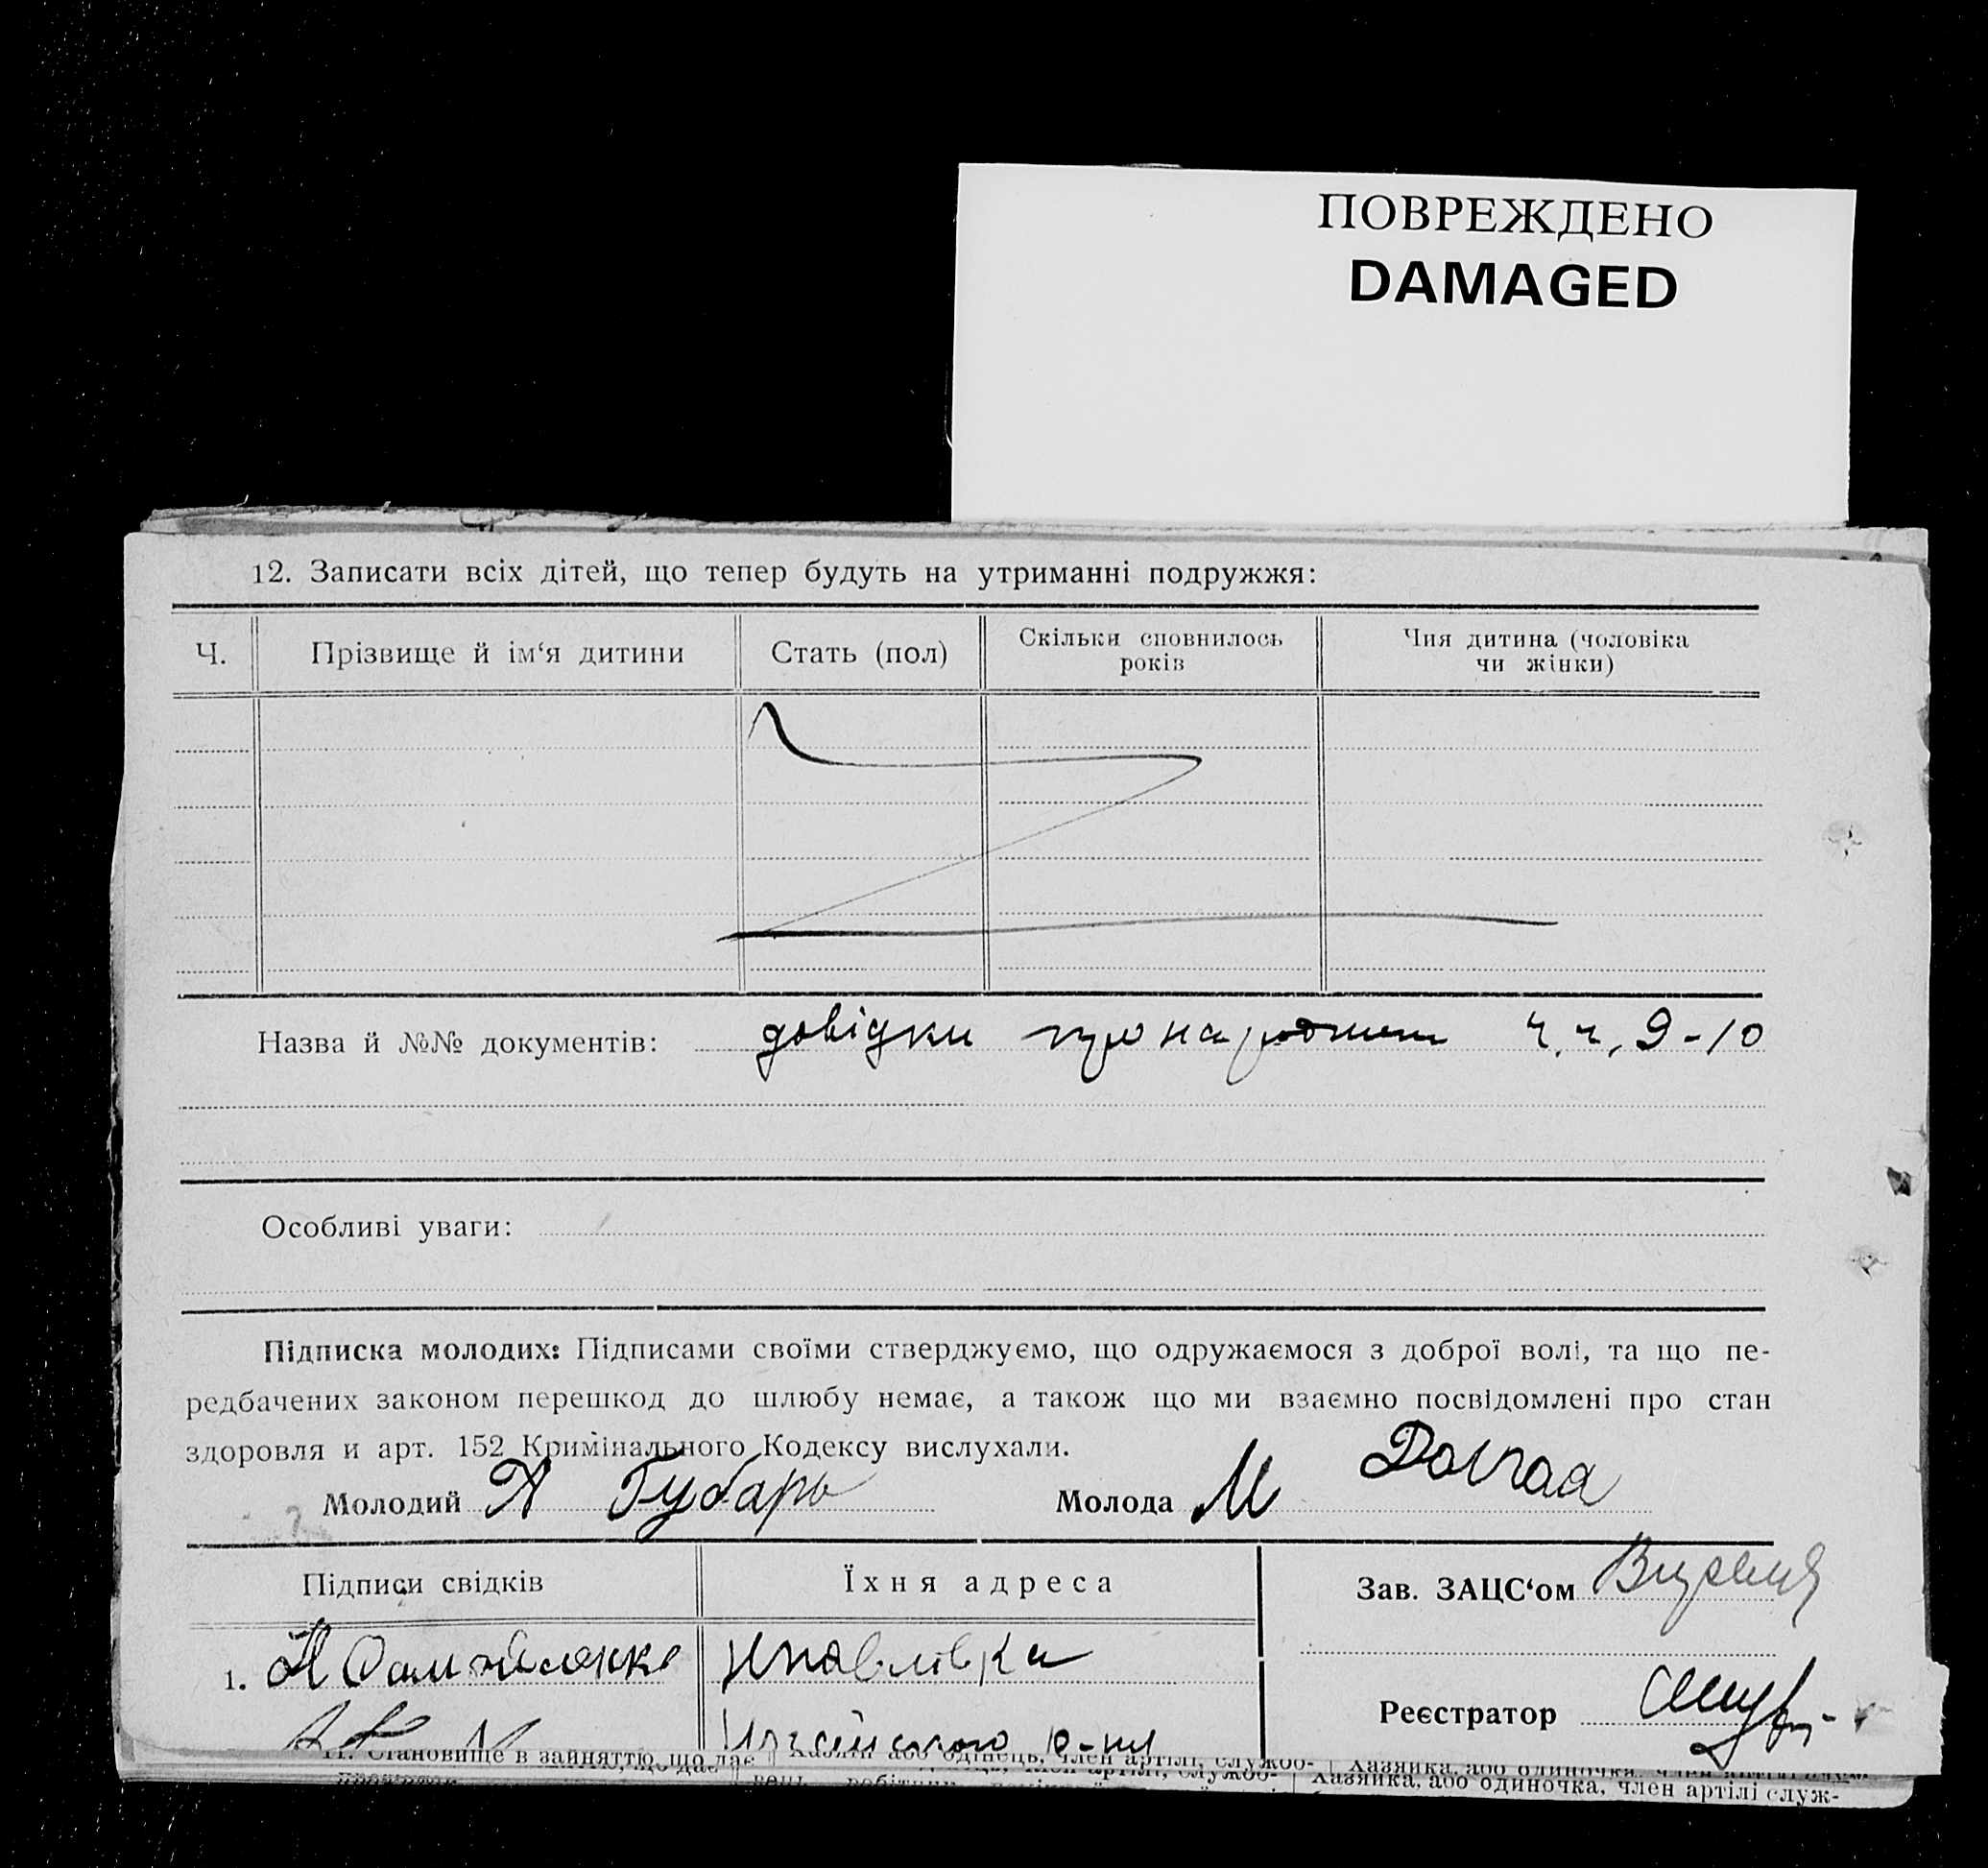 ПОВРЕЖДЕНО
DAMAGED
12. Записати всіх дітей, що тепер будуть на утриманні подружжя:
Ч. Прізвище й ім‘я дитини Стать (пол) Скільки сповнилось років Чия дитина (чоловіка чи жінки)
Назва й №№ документів: довідки про народження ч. ч. 9-10
Особливі уваги:
Підписка молодих: Підписами своїми стверджуємо, що одружаємося з доброї волі, та що пе-
редбачених законом перешкод до шлюбу немає, а також що ми взаємно посвідомлені про стан
здоровля и арт. 152 Кримінального Кодексу вислухали.
Молодий А Губарь Молода М Долгая
Підписи свідків Їхня адреса Зав. ЗАЦС‘ом
1.
Реєстратор
р-ну
11. Становище в зайняттю, що дає
або одінець, член артілі, службо- Хазяйка, або одиночка, член артілі
Хазяйка, або одиночка, член артілі служ-